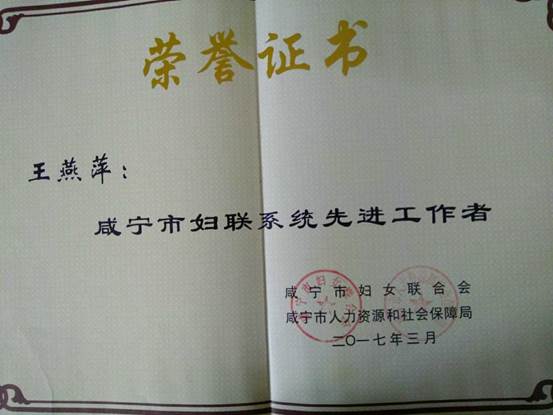 荣誉证书
王燕萍：
咸宁市妇联系统先进工作者
咸宁市妇女联合会
咸宁市人力资源和社会保障局
二〇一七年三月